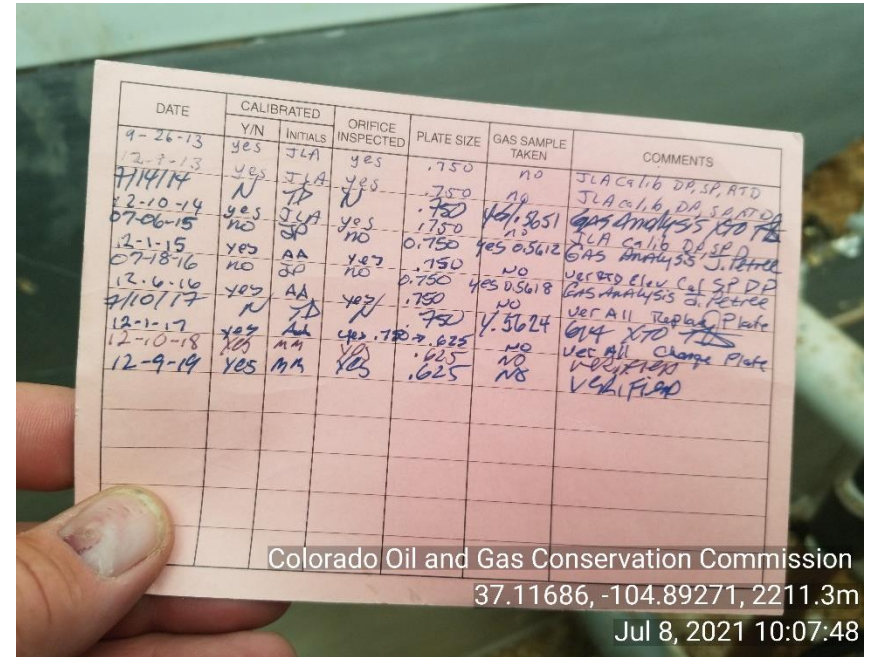 DATE CALIBRATED ORIFICE INSPECTED PLATE SIZE GAS SAMPLE TAKEN COMMENTS
Y/N INITIALS
9-26-13 yes JLA yes .750 no JLA Calib DP, SP, ATD
12-9-13 yes JLA yes .750 no JLA Calib DP, SP, ATD
7/14/14 N TD N .750 Y/.5651 GAS Analysis XTO TD
12-10-14 yes JLA yes .750 no JLA Calib DP, SP, D
07-06-15 no JP no 0.750 yes 0.5612 GAS ANALYSIS J. Petree
12-1-15 yes AA yes .750 NO ver RTD Elev Cal SP DP
07-18-16 no JP no 0.750 yes 0.5618 GAS ANALYSIS J. Petree
12.6.16 yes AA yes .750 NO ver All Replace Plate
7/10/17 N TD N .750 Y.5624 XTO TD
12-1-17 yes AA yes .750→.625 NO ver All Change Plate
12-10-18 Yes MM Yes .625 NO VERIFIED
12-9-19 Yes MM Yes .625 NO VERIFIED
Colorado Oil and Gas Conservation Commission
37.11686, -104.89271, 2211.3m
Jul 8, 2021 10:07:48